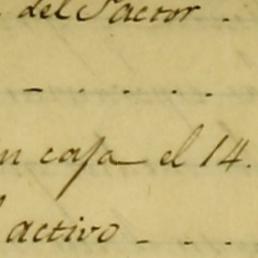 del Factor .
- . . . .
en caja el 14.
activo - . . .